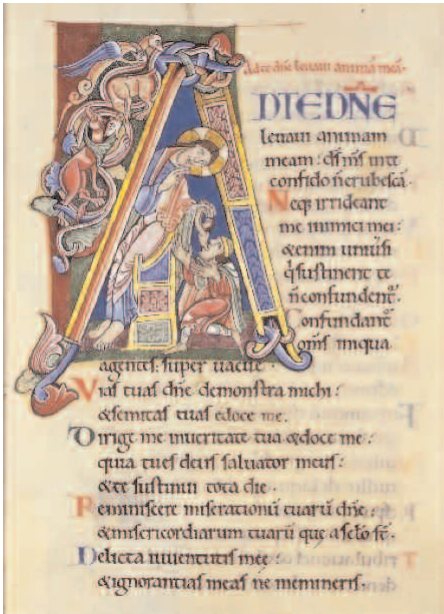 Ad te dn̄e levavi animā meā.
AD TE DNE
levavi animam
meam: dſ mſ in te
confido n̄ erubeſcā.
Neq; irrideant
me inimici mei:
&enim univſi
q̄ ſuſtinent te
n̄ confundent̄.
Confundant̄
om̄ſ iniqua
agenteſ: ſuper vacue.
Viaſ tuaſ dn̄e demonſtra michi:
&ſemitaſ tuaſ edoce me.
Dirige me inveritate tua &doce me:
quia tu eſ deuſ ſalvator meuſ:
&te ſuſtinui tota die.
Reminiſcere miſerationū tuarū dn̄e:
&miſericordiarum tuarū que a ſc̄lo ſt̄.
Delicta iuventutiſ mee:
&ignorantiaſ meaſ ne memineriſ.